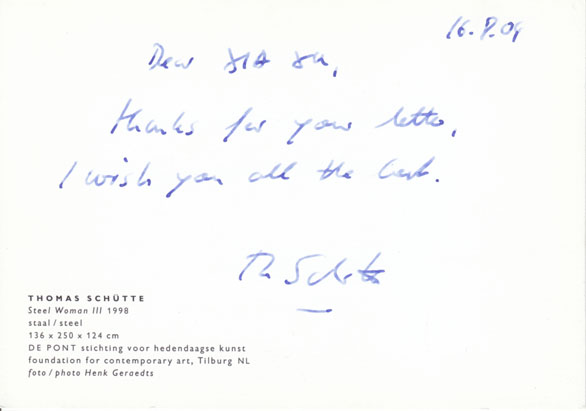 16.9.09
Dear
thanks for your letter,
I wish you all the best.
Th Schütte
THOMAS SCHÜTTE
Steel Woman III 1998
staal / steel
136 x 250 x 124 cm
DE PONT stichting voor hedendaagse kunst
foundation for contemporary art, Tilburg NL
foto / photo Henk Geraedts